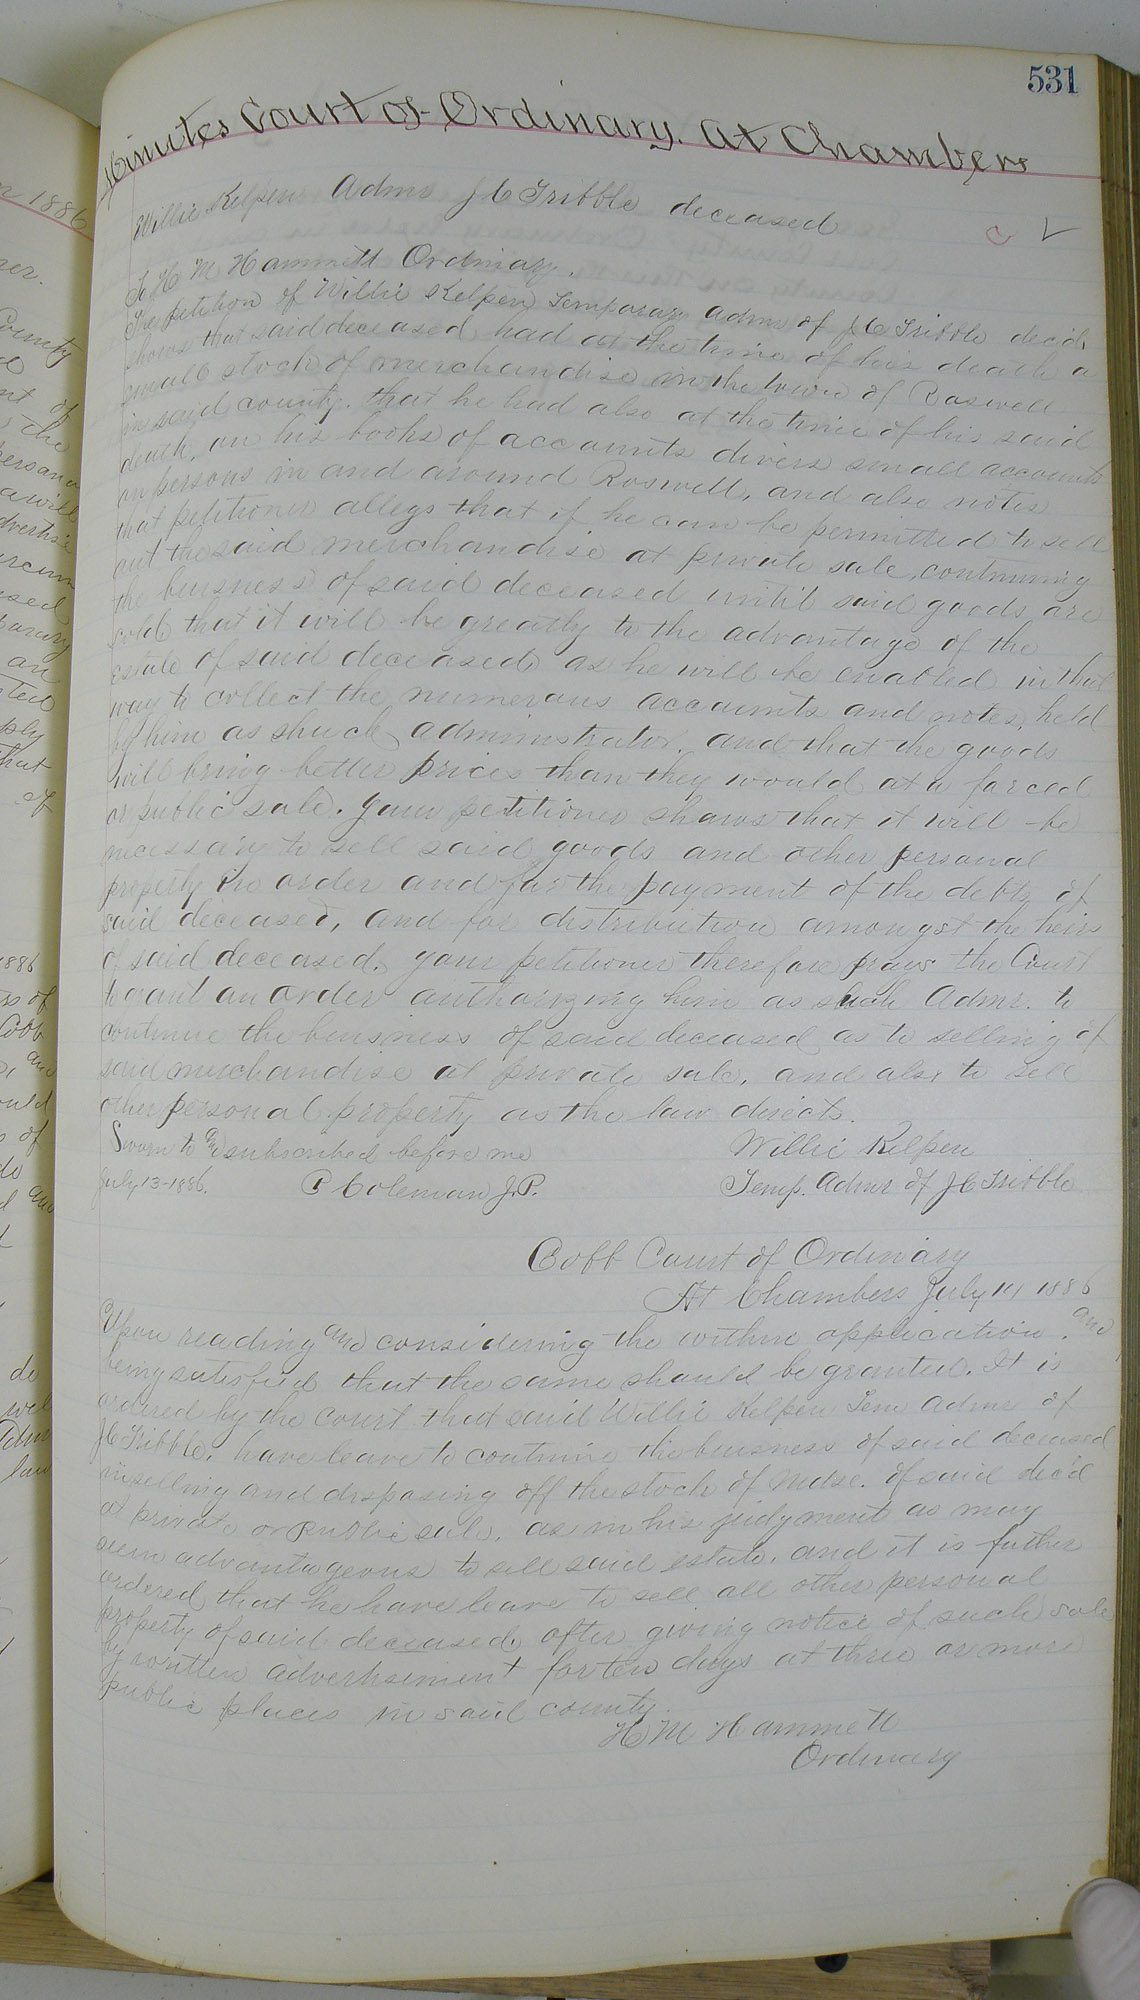 531
Minutes Court of Ordinary. At Chambers
Willie Kelpen Admr J C Tribble deceased
C
To H M Hammett Ordinary.
The petition of Willie Kelpen Temporary admr of J C Tribble decd,
shows that said deceased had at the time of his death a
small stock of merchandise in the town of Roswell
in said county. that he had also at the time of his said
death, on his books of accounts divers small accounts
on persons in and around Roswell, and also notes
that petitioner allegs that if he can be permitted to sell
out the said merchandise at private sale, continuing
the buisness of said deceased until said goods are
sold that it will be greatly to the advantage of the
estate of said deceased, as he will be enabled in that
way to collect the numerous accounts and notes, held
by him as shuch administrator. and that the goods
will bring better prices than they would at a forced
or public sale. your petitioner shows that it will be
necessary to sell said goods and other personal
property in order and for the payment of the debts of
said deceased, and for distribution amongst the heirs
of said deceased. your petitioner therefore prays the Court
to grant an order authorizing him as such Admr. to
continue the buisness of said deceased as to selling of
said merchandise at private sale, and also to sell
other personal property as the law direct.
Sworn to and subscribed before me Willie Kelpen
July 13-1886. P Coleman J.P. Temp. Admr of J C Tribble
Cobb Court of Ordinary
At Chambers July 14 1886
Upon reading and considering the within application. and
being satisfied that the same should be granted. It is
ordered by the court that said Willie Kelpen Tem Admr of
J C Tribble. have leave to continue the buisness of said deceased
in selling and dispasing off the stock of Mdse. of said dec'd
at private or public sale, as in his judgment as may
seem advantageous to sell said estate. and it is futher
ordered that he have leave to sell all other personal
property of said deceased, after giving notice of such sale
by written advertisement for ten days at three or more
public places in said county.
H M Hammett
Ordinary
1886
County